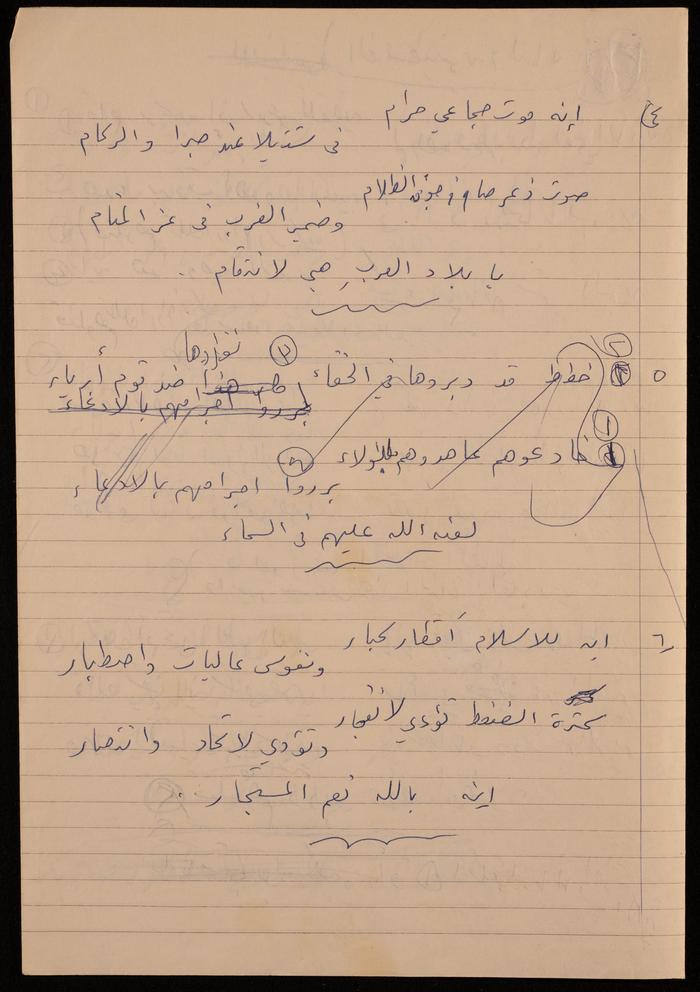 ٤) إنه موت جماعي حرام
في شتيلا عند صبرا والركام
صوت ذعر صاح في جوف الظلام
وضمير الغرب في عز المنام
يا بلاد العرب هبي لانتقام .
٥ خطط قد دبروها في الخفاء ٣ نفذوها
ضد قوم أبرياء
برروا اجرامهم بالادعاء
٢
١ خادعوهم عاهدوهم بالولاء
برروا اجرامهم بالادعاء
لعنة الله عليهم في السماء
٦) إنه للاسلام أقطار كبار
ونفوس عاليات واصطبار
كثرة الضغط تؤدي لانفجار
وتؤدي لاتحاد وانتصار
إنه بالله نعم المستجار . .